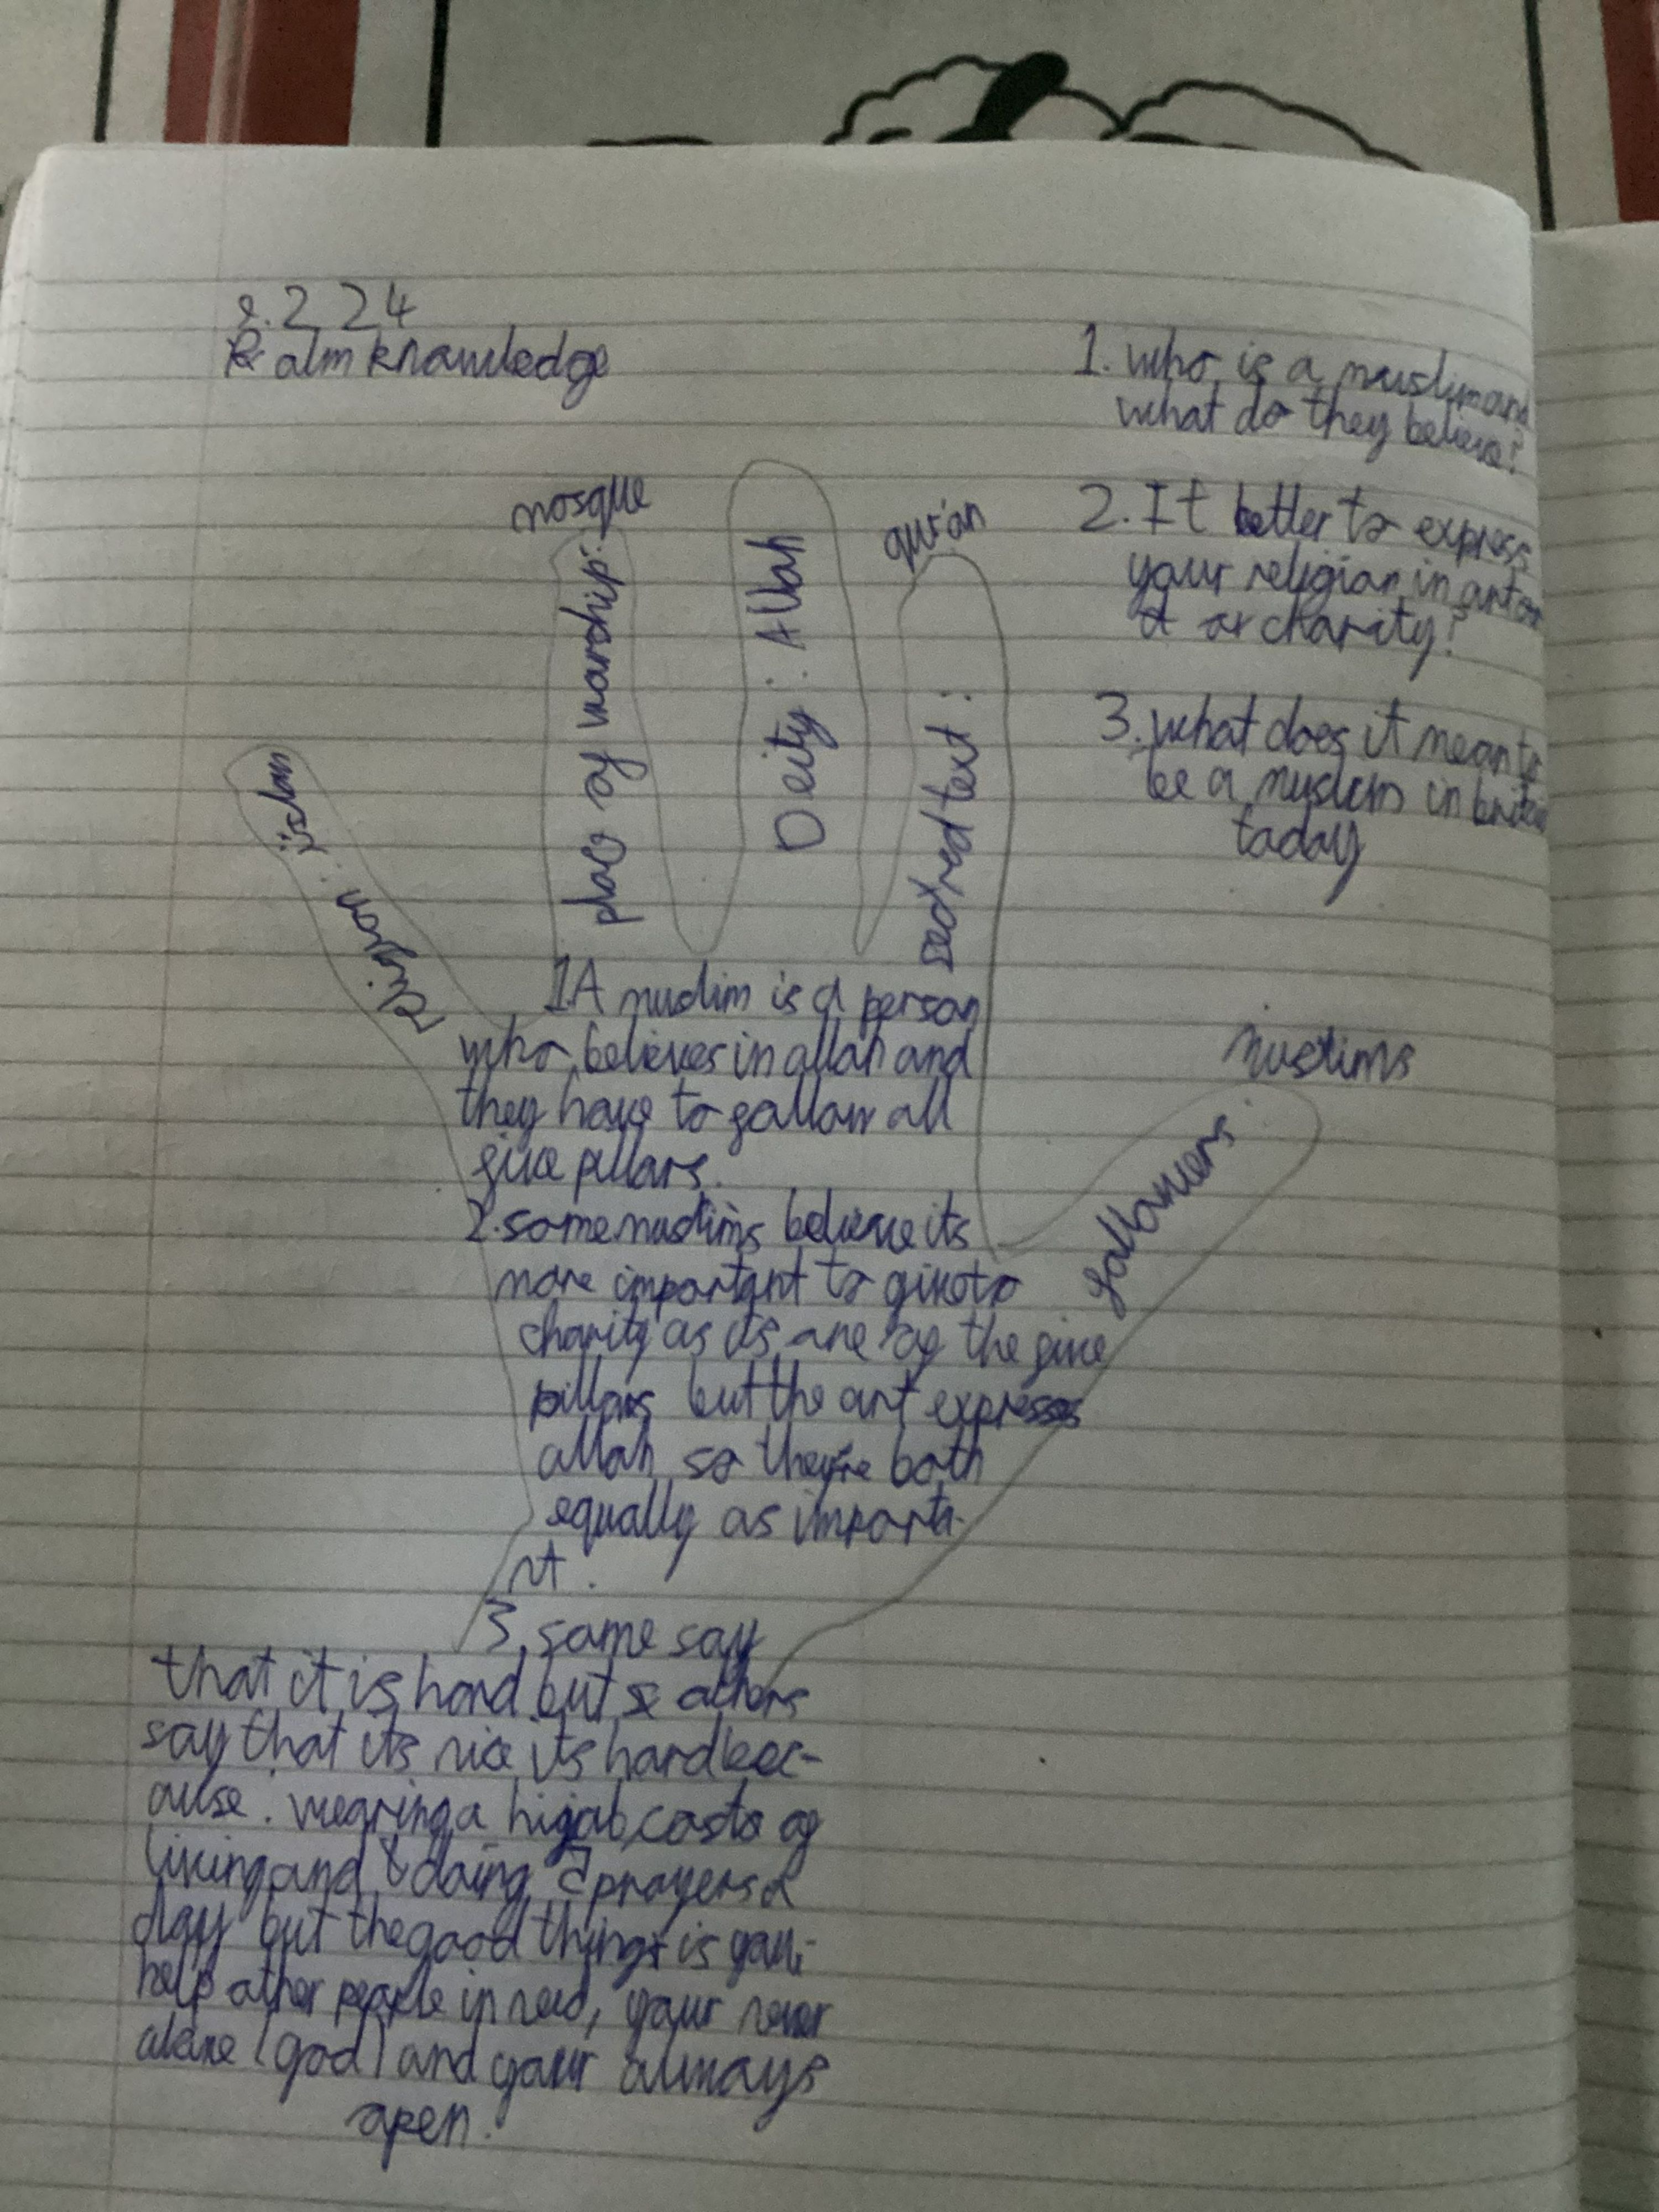 2.2.24
Palm knowledge
1. who is a muslim and
what do they believe?
2. It better to express
your religion in art or
or charity?
3. what does it mean to
be a muslim in
today
religion: islam
place of worship:
mosque
Deity: Allah
sacred text:
qur'an
followers:
muslims
1 A muslim is a person
who believes in allah and
they have to follow all
five pillars.
2. some muslims believe its
more important to give to
charity as its one of the five
pillars but the art expresses
allah so they're both
equally as importa-
nt.
3. some say
that it is hard but others
say that its nice its hard bec-
ause: wearing a hijab, costs of
living and doing 5 prayers a
day but the good things is you
help other people in need, your never
alone (god) and your always
open.